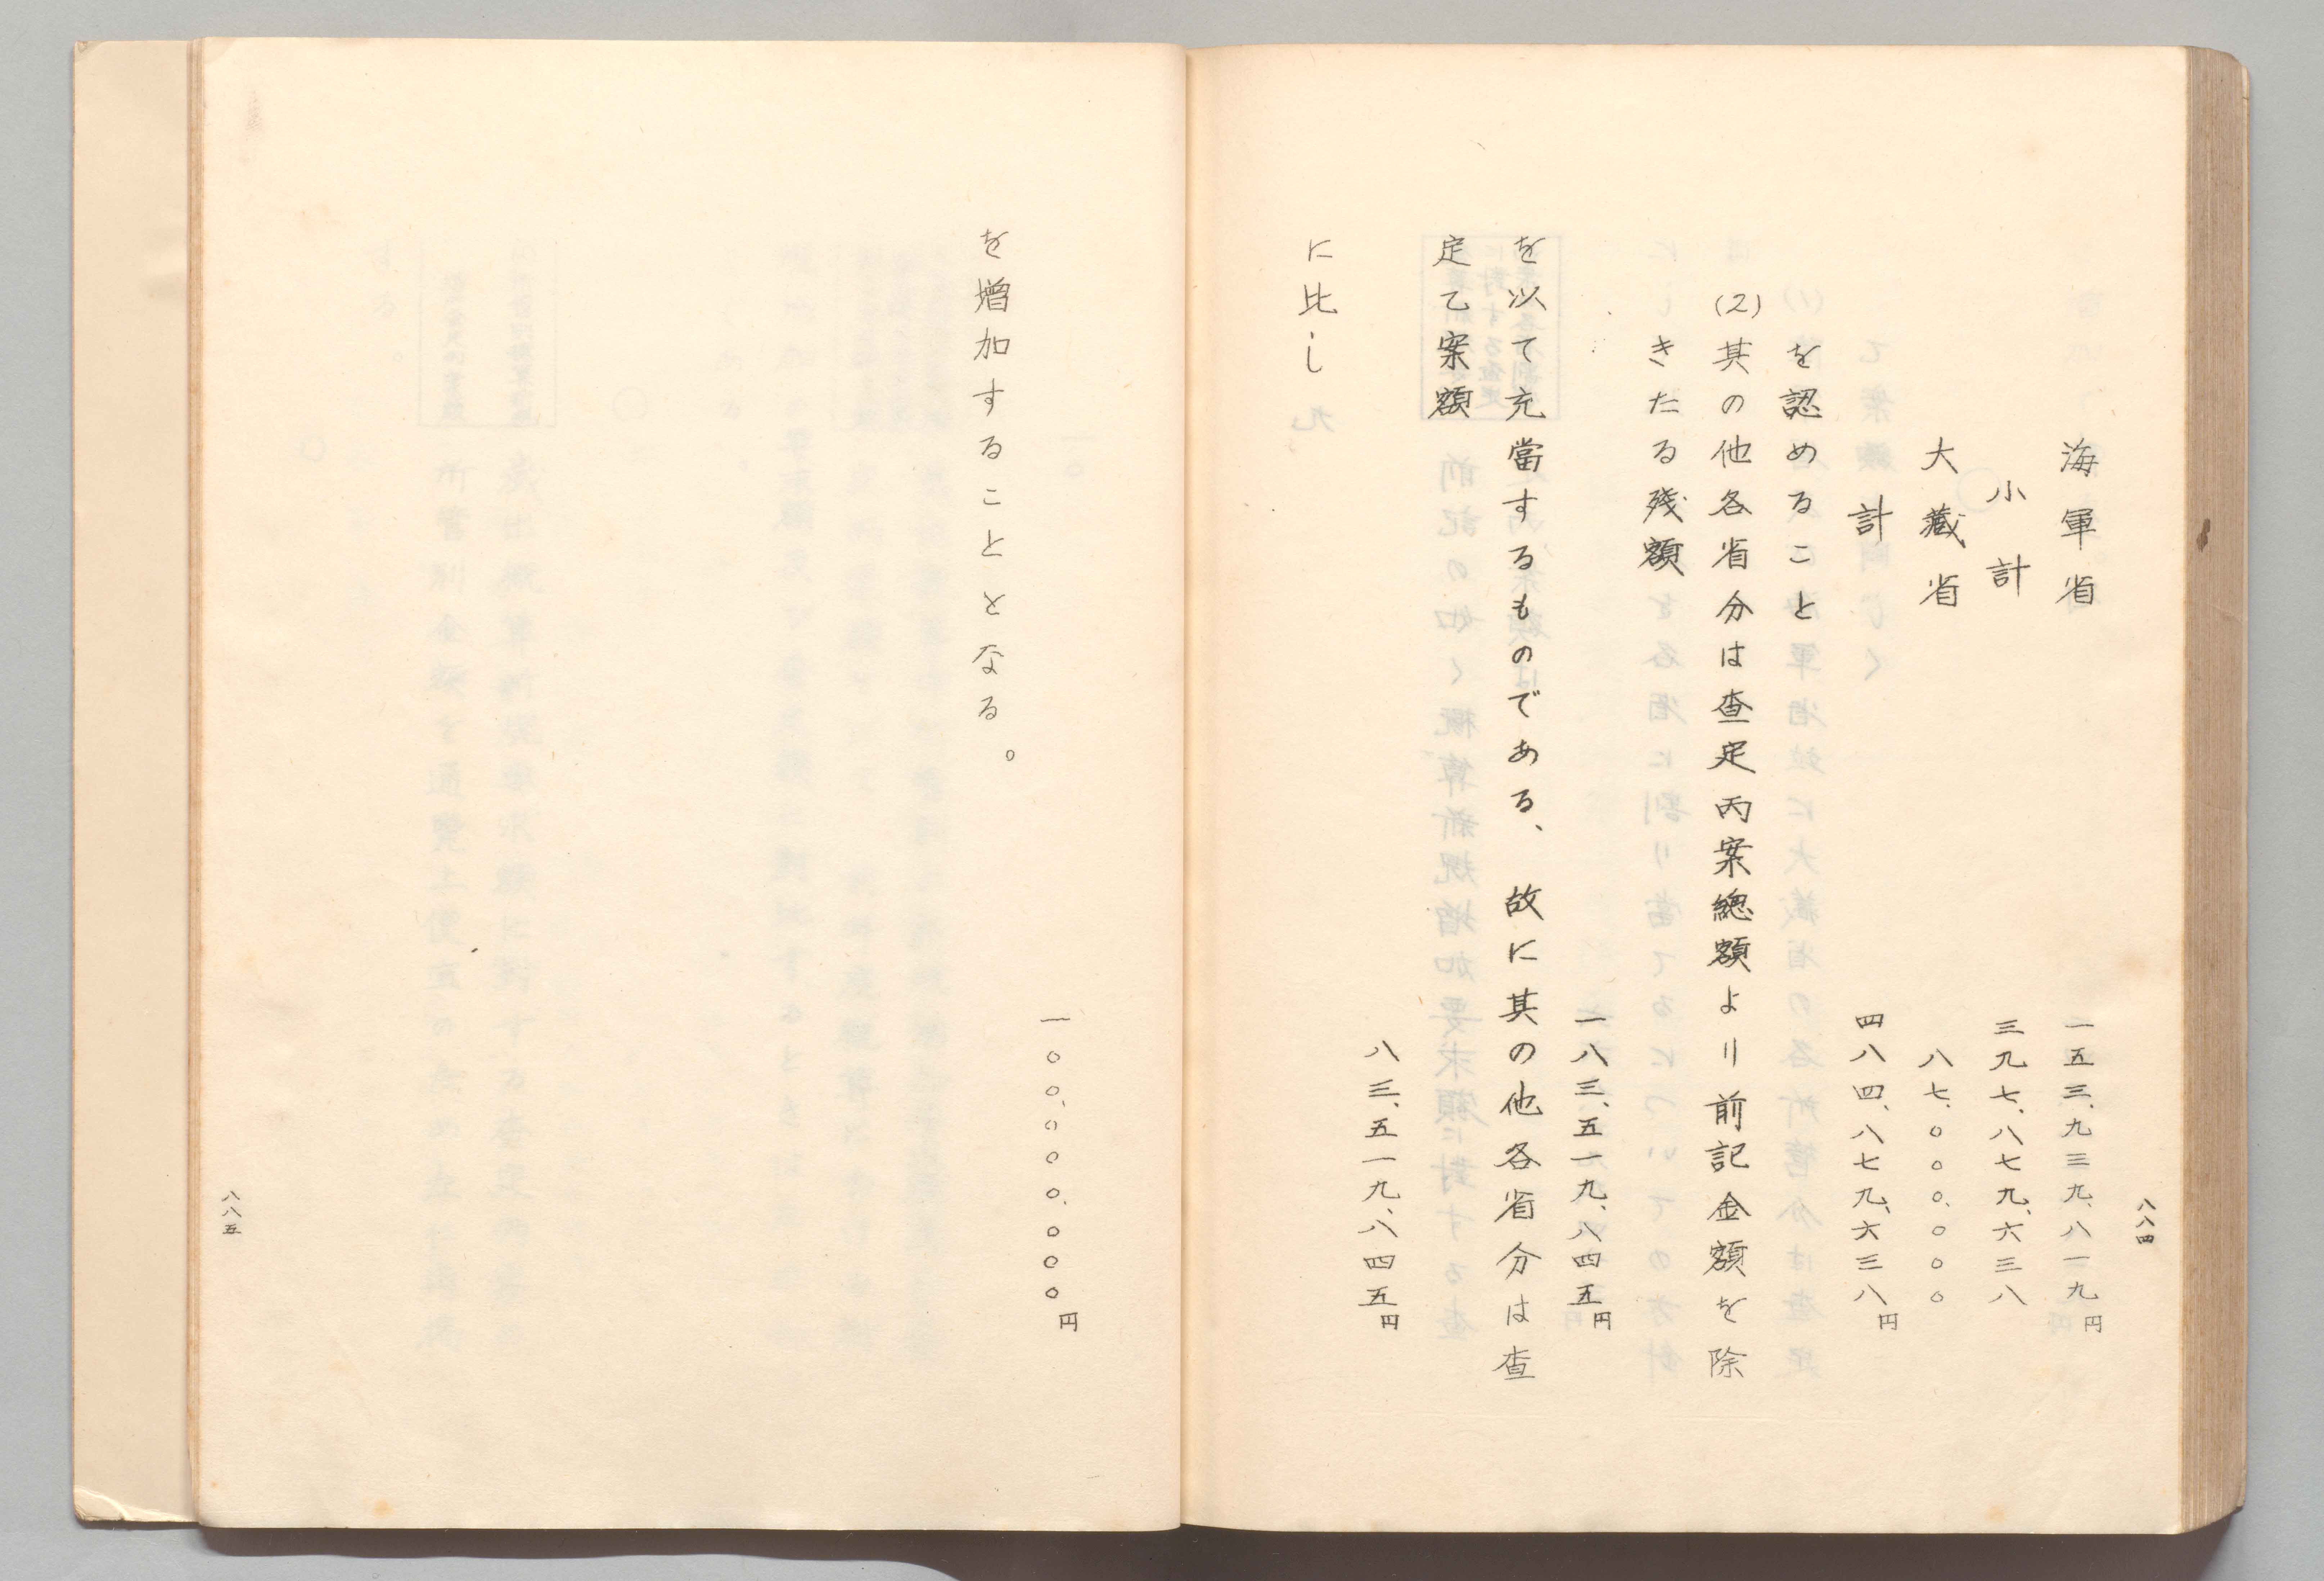 八八四
海軍省　一五三、九三九、八一九円
小計　三九七、八七九、六三八
大藏省　八七、〇〇〇、〇〇〇
計　四八四、八七九、六三八円
を認めること
(2)其の他各省分は査定丙案總額より前記金額を除
きたる残額
一八三、五一九、八四五円
を以て充當するものである、故に其の他各省分は査
定乙案額
八三、五一九、八四五円
に比し
一〇〇、〇〇〇、〇〇〇円
を増加することとなる。
八八五